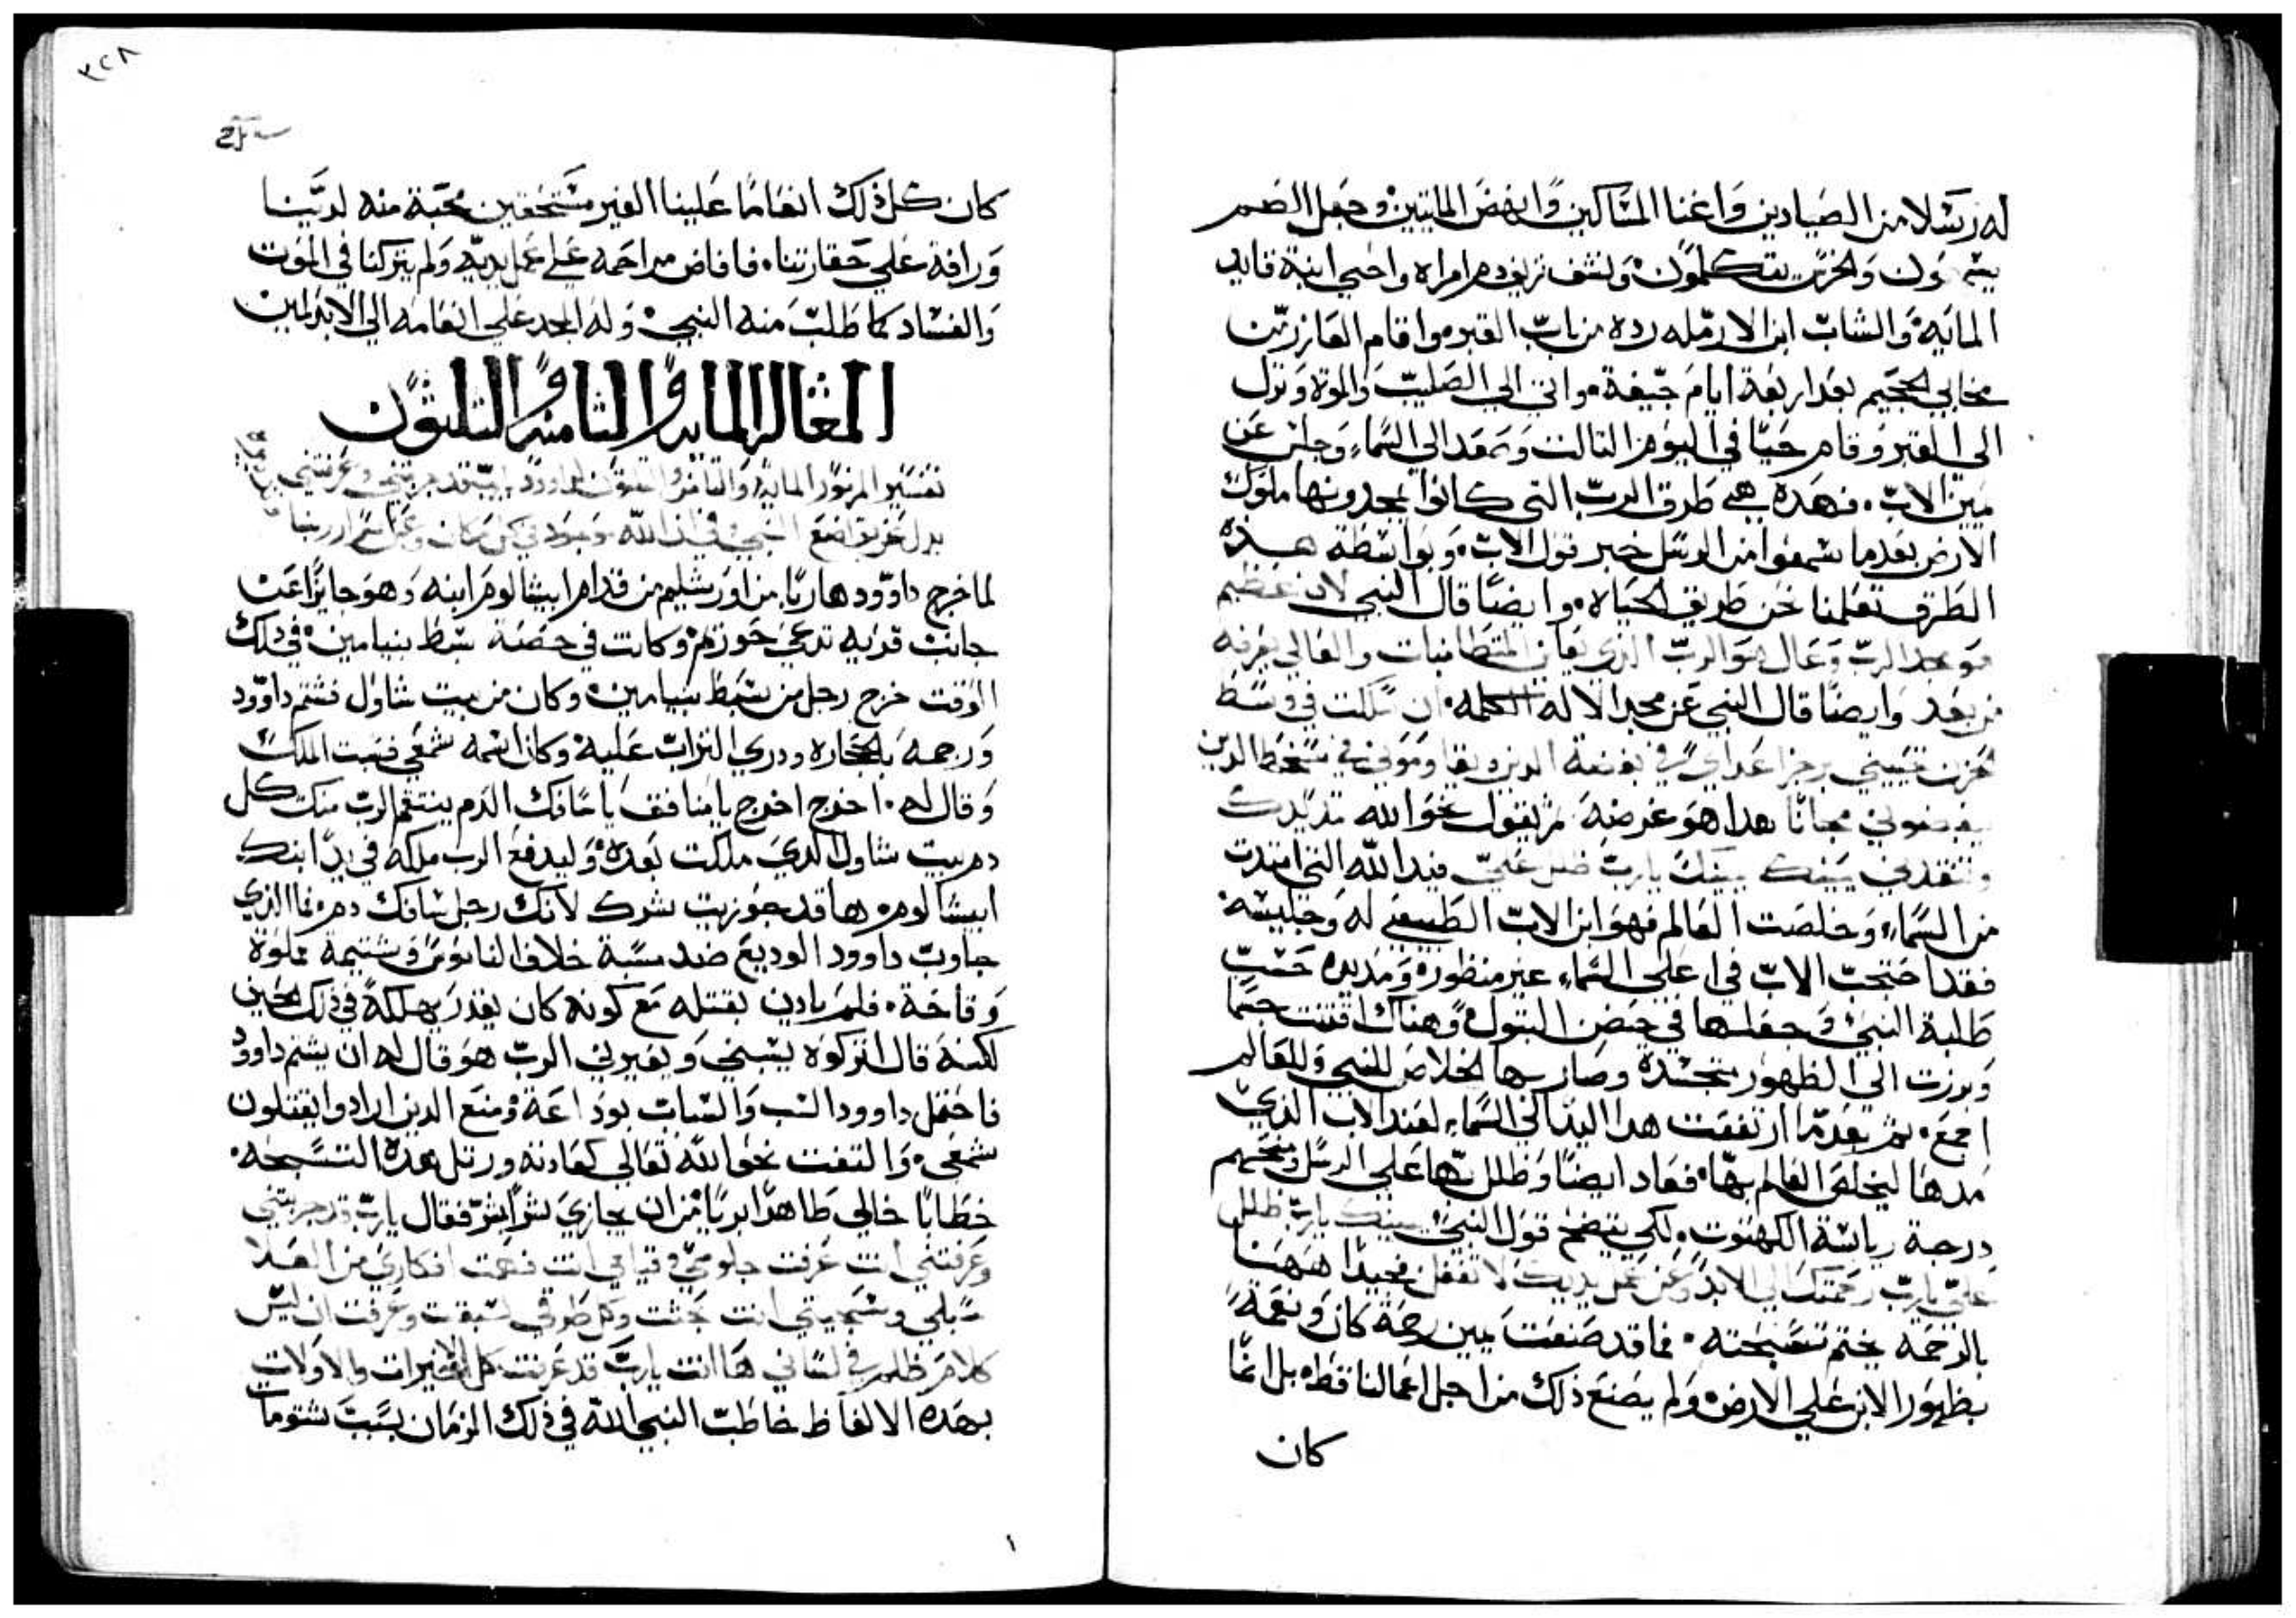 له رسلا من الصيادين واغنا المساكين وانهض المايتين وجعل الصم
يسمعون والخرس يتكلمون ونشف نزيف دم امراه واحيي ابنة قايد
المايه والشاب ابن الارمله رده من باب القبر واقام العازر من
مخابي الجحيم بعد اربعة ايام جيفة واتي الي الصليب والموت ونزل
الي القبر وقام حيا في اليوم الثالث وصعد الي السماء وجلس عن
يمين الاب فهده هي طرق الرب التي كانوا يمجدونها ملوك
الارض بعدما سمعوا من الرسل خبر قول الاب وبواسطة هذه
الطرق تعلمنا نحن طريق الحياه وايضا قال النبي لان عظيم
هو مجد الرب وعال هو الرب الذي يعاين المتطامنات والعالي يعرفه
من بعد وايضا قال النبي عن مجد الاله الكلمه ان سلكت في وسط
الحزن تحييني برجز اعداي في
يبغضوني مجانا هدا هو غرضه ثم يقول نحو الله تمد يدك
وتنقذني يمينك يمينك يارب ظلل علي فيد الله التي امتدت
من السماء وخلصت العالم فهو ابن الاب الطبيعي له وجليسه
فقد احتجب الاب في اعلي السماء غير منظوره ومد يده حسب
طلبة النبي وجعلها في حضن البتول وهناك اقتنت جسما
وبرزت الي الظهور متجسده وصار بها الخلاص للنبي وللعالم
اجمع ثم بعدما ارتفعت هدا اليد الي السماء لعند الاب الذي
مدها ليخلص العالم بها فعاد ايضا وظلل بها علي الرسل ومنحهم
درجة رياسة الكهنوت لكي يتضح قول النبي يمينك يارب ظلل
علي يارب رحمتك الي الابد وعن عمل يديك لا تغفل فجيدا ههنا
بالرحمه يختم تسبحته فما قد صنعت يمين رحمة كان ونعمة
بظهور الابن علي الارض ولم يصنع ذلك من اجل اعمالنا قط بل انما
كان
٣٢٨
كان كل ذلك انعاما علينا الغير مستحقين محبة منه لدينا
ورافة علي حقارتنا فافاض مراحمه علي عمل يديه ولم يتركنا في الموت
والفساد كما طلب منه النبي وله المجد علي انعامه الي الابد امين
المقاله المايه والثامنه والثلثون
تفسير المزمور المايه والثامن والثلثون لداوود يارب قد جربتني وعرفتني
يدل عن تواضع النبي في ان الله موجود في كل مكان وعن اسرار ربنا
لما خرج داوود هاربا من اورشليم من قدام ابيشالوم ابنه وهو جايزا عن
جانب قريه تدعي حوريم وكانت في حصة سبط بنيامين في ذلك
الوقت خرج رجل من سبط بنيامين وكان من بيت شاول فشتم داوود
ورجمه بالحجاره ودري التراب عليه وكان اسمه شمعي فسب الملك
وقال له اخرج اخرج يا منافق يا سافك الدم ينتقم الرب منك كل
دم بيت شاول الدي ملكت بعده وليدفع الرب ملكه في يد ابنك
ابيشالوم ها قد جوزيت بشرك لانك رجل سافك دم فما الذي
جاوب داوود الوديع ضد مسبة خلاف الناموس وشتيمة مملوة
وقاحة فلم يادن بقتله مع كونه كان يقدر يهلكه في ذلك الحين
لكنه قال اتركوه يسبني ويعيرني الرب هو قال له ان يشتم داوود
فاحتمل داوود السب والسباب بوداعة ومنع الدين ارادوا يقتلون
شمعي والتفت نحو الله تعالي كعادته ورتل هده التسبحه
خطابا خالي طاهرا بريا من ان يجازي شرا بشر فقال يارب قد جربتني
وعرفتني انت عرفت جلوسي وقيامي انت فهمت افكاري من العلا
سبلي وسجيتي انت بحثت وكل طرقي سبقت وعرفت ان ليس
كلام ظلم في لساني ها انت يارب قد عرفت كل الاخيرات والاولات
بهده الالفاظ خاطب النبي الله في ذلك الزمان بسبب شتومات